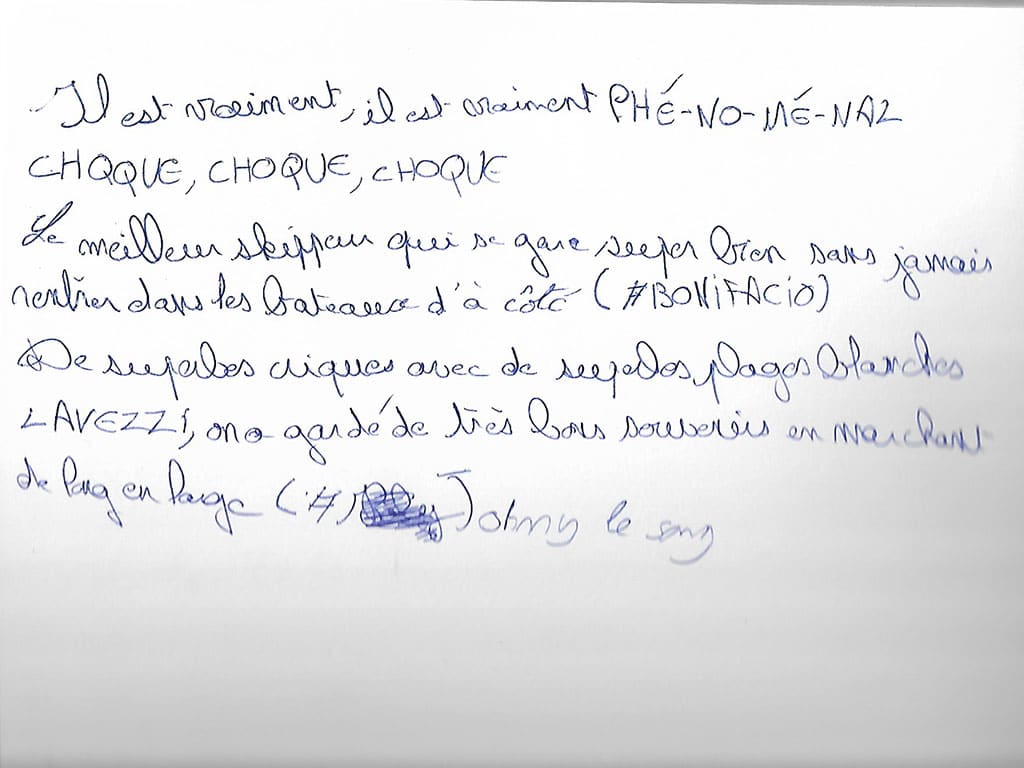 Il est vraiment, il est vraiment PHÉ-NO-MÉ-NAL
CHOQUE, CHOQUE, CHOQUE
Le meilleur skippeur qui se gare super bien sans jamais
rentrer dans les bateaux d'à côté (#BONIFACIO)
De superbes criques avec de superbes plages blanches
LAVEZZI, on a gardé de très bons souvenirs en marchant
de long en large (# Johny le song